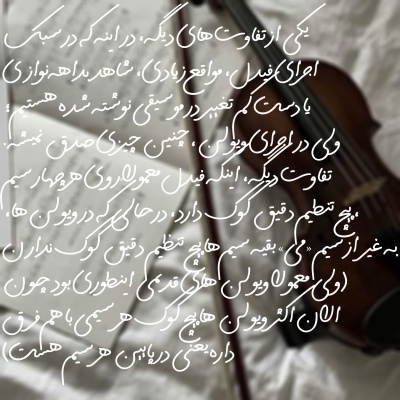 یکی از تفاوت‌های دیگه، در اینه که در سبک
اجرای فیدل، مواقع زیادی، شاهد بداهه‌نوازی
یا دست کم تغییر در موسیقی نوشته شده هستیم؛
ولی در اجرای ویولن، چنین چیزی صدق نمیشه.
تفاوت دیگه، اینکه فیدل معمولا روی هر چهار سیم
،پیچ تنظیم دقیق کوک دارد، در حالی که در ویولن ها
به غیر از سیم «می» بقیه سیم ها پیچ تنظیم دقیق کوک ندارن
(ولی معمولا ویولن های قدیمی اینطوری بود چون
الان اکثر ویولن ها پیچ کوک هر سیمی با هم فرق
داره یعنی در پایین هر سیم هست)